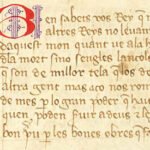 Ben sabets vos Rey q̃ n
altres Reys no leuan
daquest mon quant ue ala h
dla mort sino sengles lançols
q̃ son de millor tela q̃ los de
altra gent mas aço nos ron
de mes p lo gran poder q̃ haue
quen poden fuit adeus z seg
bon pu p les bones obres q̃ fa